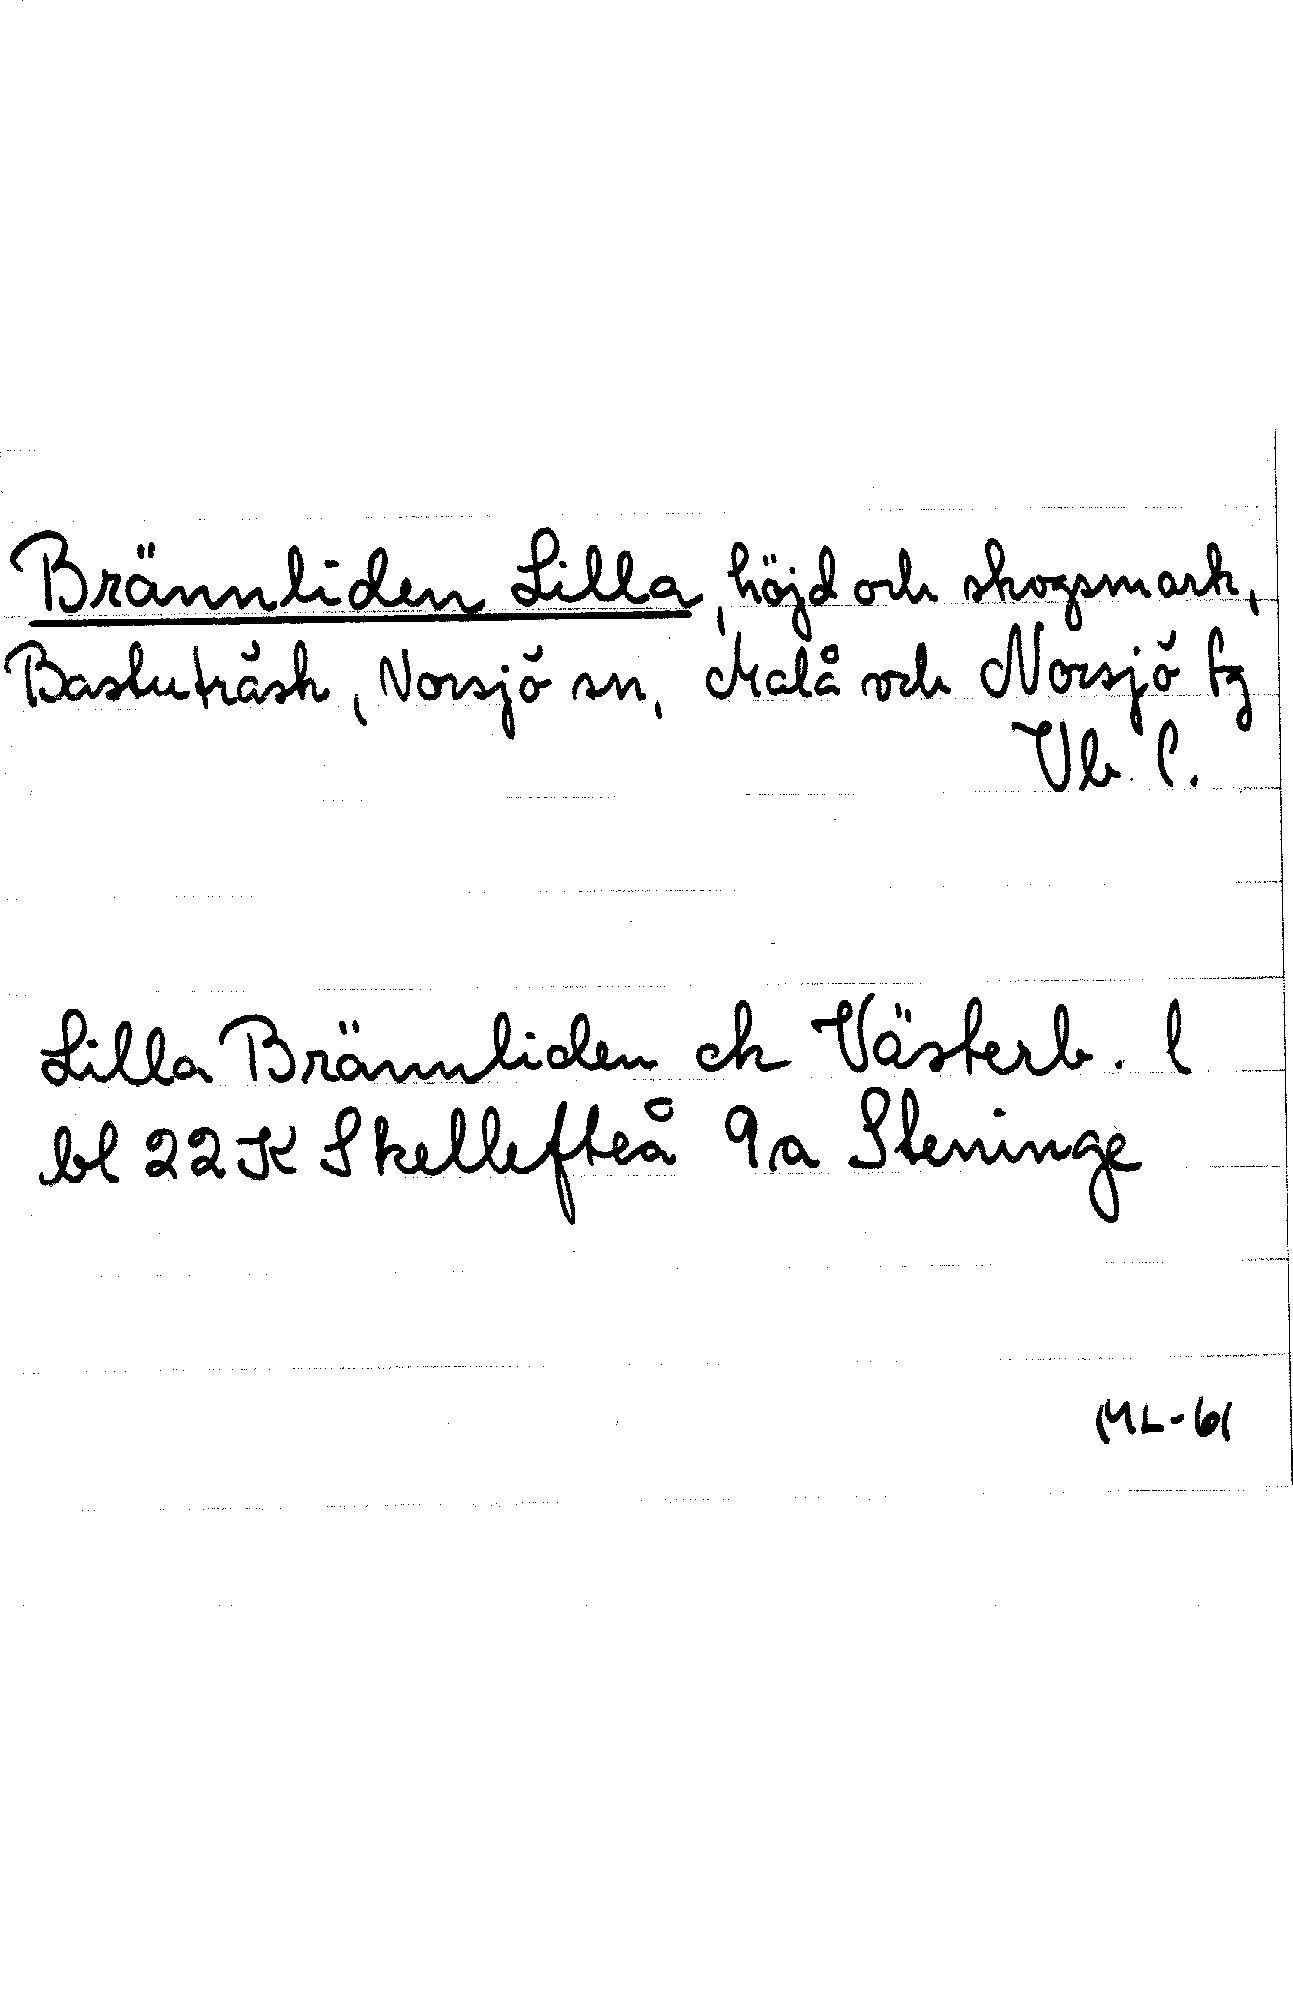 Brännliden Lilla, höjd och skogsmark,
Bastuträsk, Norsjö sn, Malå och Norsjö tg
Vb l.
Lilla Brännliden ek Västerb. l
bl 22K Skellefteå 9a Steninge
ML-61